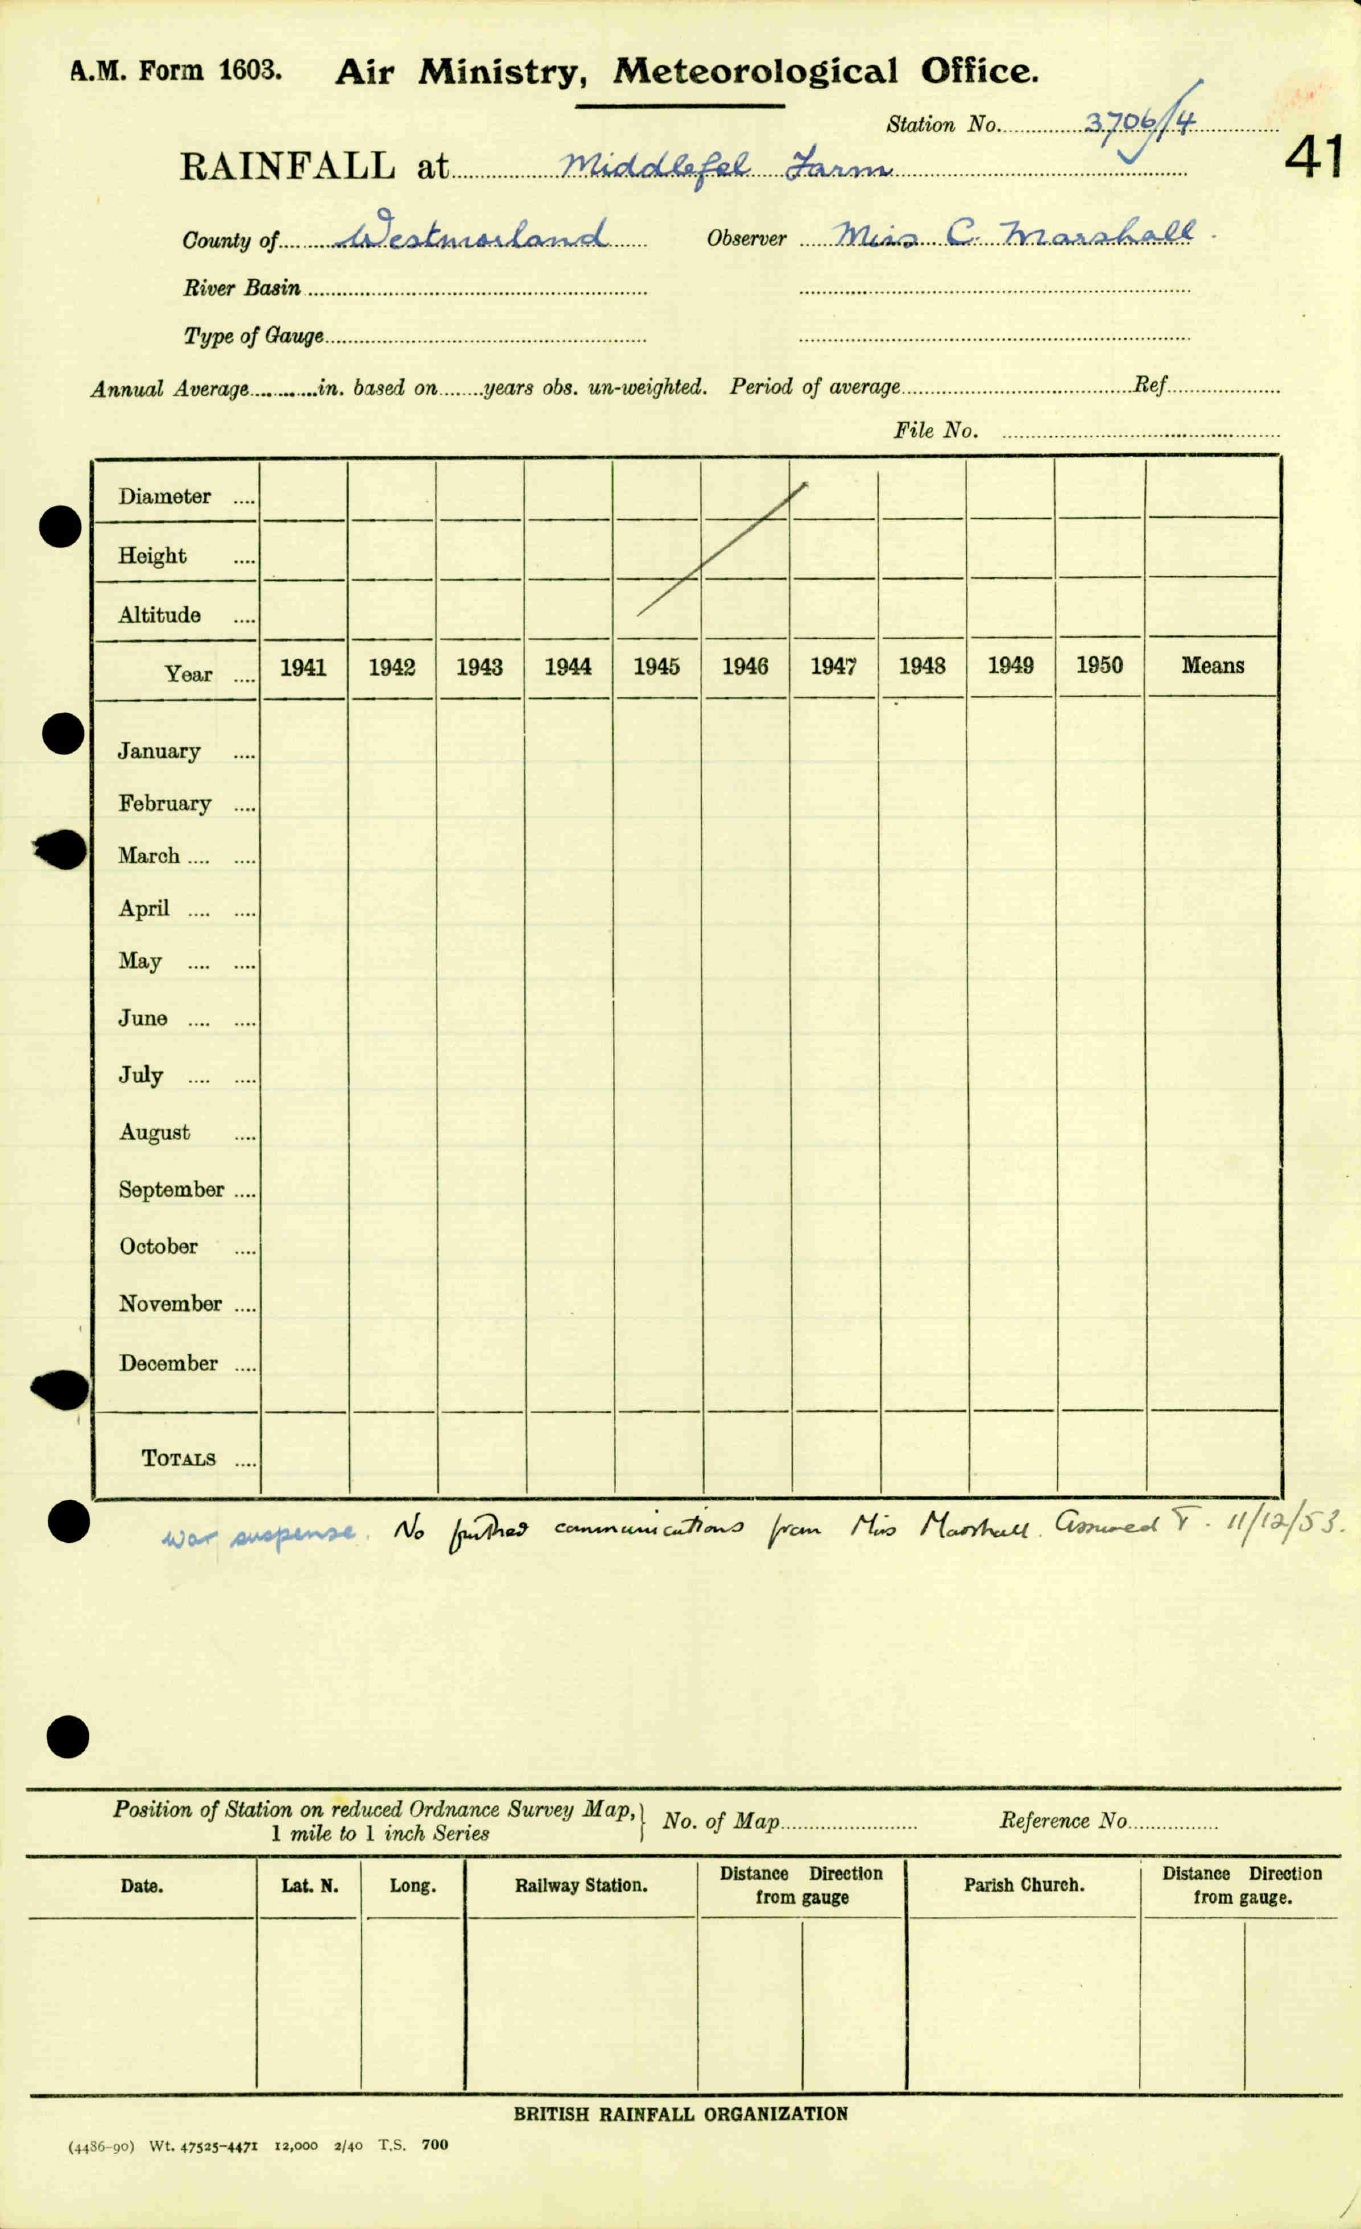 A.M. Form 1603. Air Ministry, Meteorological Office.
Station No. 3706/4
41
RAINFALL at Middlefel Farm
County of Westmorland Observer Miss C. Marshall.
River Basin
Type of Gauge
Annual Average in. based on years obs. un-weighted. Period of average Ref
File No.
Diameter
Height
Altitude
Year 1941 1942 1943 1944 1945 1946 1947 1948 1949 1950 Means
January
February
March
April
May
June
July
August
September
October
November
December
TOTALS
War suspense. No further communications from Miss Marshall. Assumed T. 11/12/53.
Position of Station on reduced Ordnance Survey Map, } No. of Map Reference No.
1 mile to 1 inch Series
Date. Lat. N. Long. Railway Station. Distance Direction from gauge Parish Church. Distance Direction from gauge.
BRITISH RAINFALL ORGANIZATION
(4486-90) Wt. 47525-4471 12,000 2/40 T.S. 700